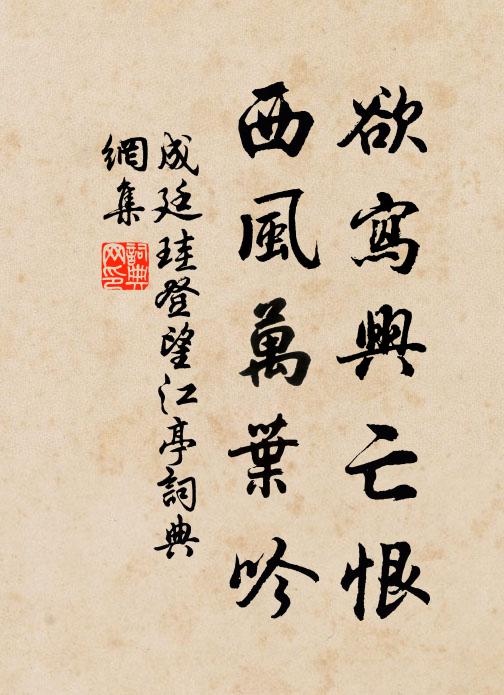 欲寫興亡恨
西風萬葉吟
成廷珪登望江亭詞典
網集
詞典網印